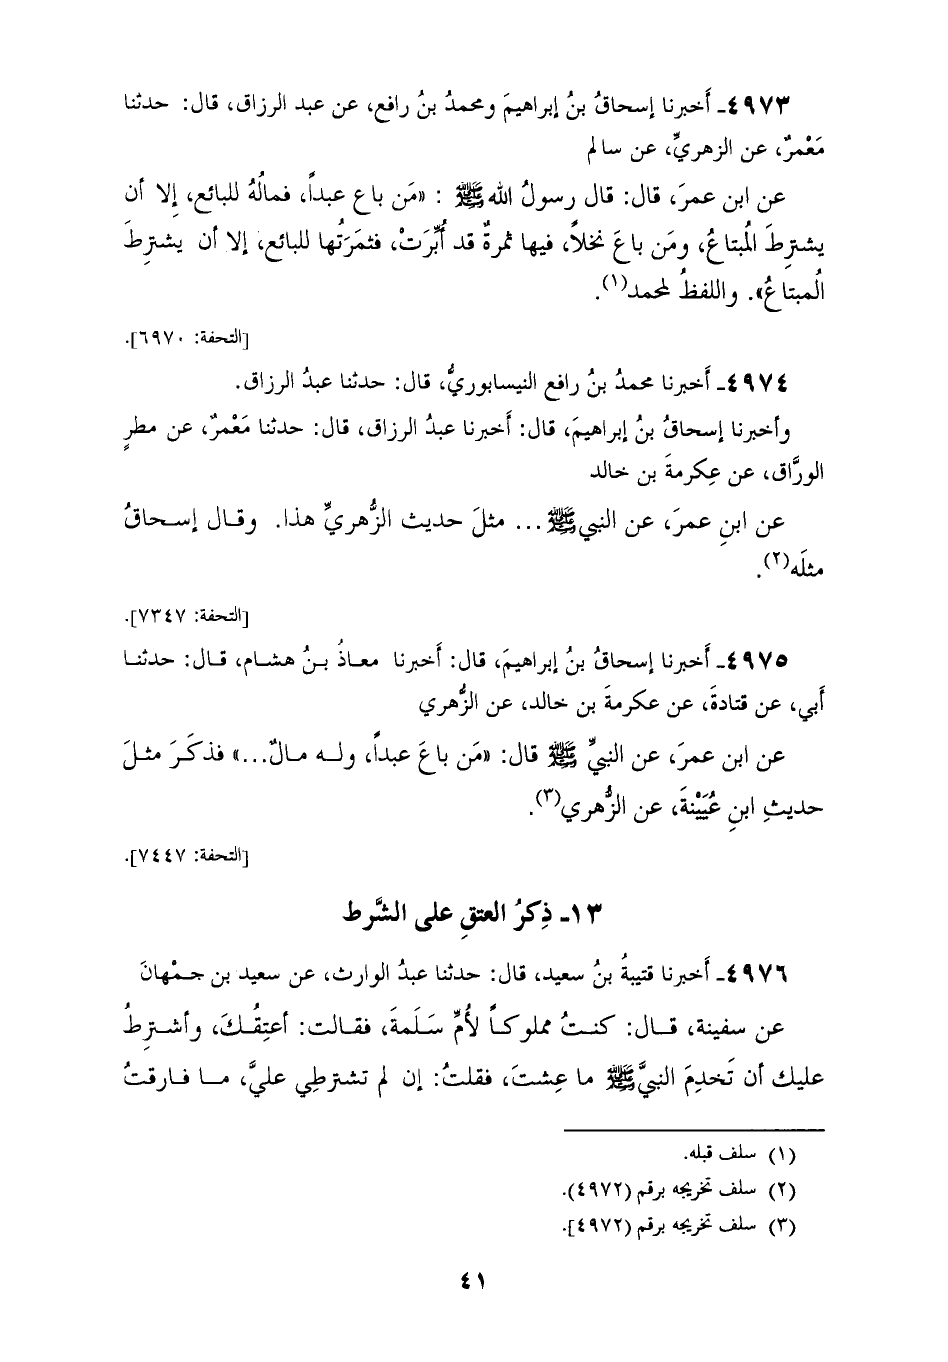 ٤٩٧٣ـ أَخبرنا إسحاقُ بنُ إبراهيمَ ومحمدُ بنُ رافع، عن عبد الرزاق، قال: حدثنا
مَعْمرٌ، عن الزهريِّ، عن سالم
عن ابن عمرَ، قال: قال رسولُ اللهﷺ : «مَن باع عبداً، فمالُهُ للبائع، إلا أن
يشترِطَ المُبتاعُ، ومَن باعَ نخلاً، فيها ثمرةٌ قد أُبِّرَتْ، فثمَرَتُها للبائعِ، إلا أن يشترِطَ
المُبتاعُ». واللفظُ لمحمد(١).
[التحفة: ٦٩٧٠].
٤٩٧٤ـ أَخبرنا محمدُ بنُ رافع النيسابوريُّ، قال: حدثنا عبدُ الرزاق.
وأخبرنا إسحاقُ بنُ إبراهيمَ، قال: أَخبرنا عبدُ الرزاق، قال: حدثنا مَعْمرٌ، عن مطرٍ
الورَّاق، عن عِكرمةَ بن خالد
عن ابنِ عمرَ، عن النبيﷺ... مثلَ حديث الزُّهريِّ هذا. وقال إسحاقُ
مثلَه(٢).
[التحفة: ٧٣٤٧].
٤٩٧٥ـ أَخبرنا إسحاقُ بنُ إبراهيمَ، قال: أَخبرنا معاذُ بنُ هشام، قال: حدثنا
أَبي، عن قتادةَ، عن عكرمةَ بن خالد، عن الزُّهري
عن ابن عمرَ، عن النبيِّ ﷺ قال: «مَن باعَ عبداً، وله مالٌ...» فذكَرَ مثلَ
حديثِ ابنِ عُيَيْنةَ، عن الزُّهري(٣).
[التحفة: ٧٤٤٧].
١٣ـ ذِكرُ العتقِ على الشَّرط
٤٩٧٦ـ أَخبرنا قتيبةُ بنُ سعيد، قال: حدثنا عبدُ الوارث، عن سعيد بن جمْهانَ
عن سفينة، قال: كنتُ مملوكاً لأُمِّ سَلَمةَ، فقالت: أعتِقُكَ، وأشترِطُ
عليك أن تَخدِمَ النبيَّﷺ ما عِشتَ، فقلتُ: إن لم تشترطِي عليَّ، ما فارقتُ
(١) سلف قبله.
(٢) سلف تخريجه برقم (٤٩٧٢).
(٣) سلف تخريجه برقم (٤٩٧٢].
٤١